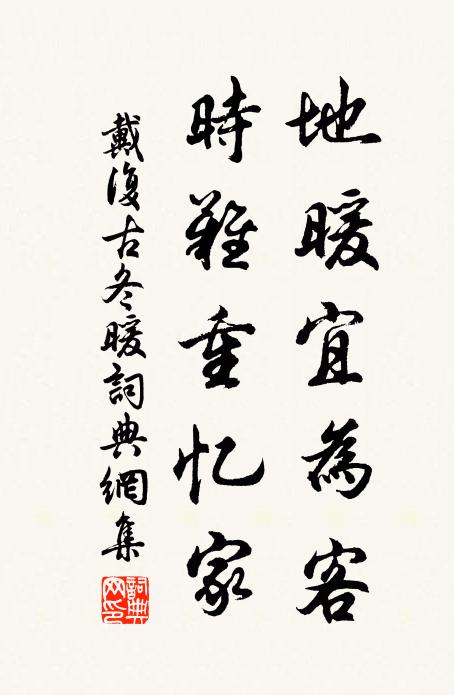 地暖宜為客
時難重忆家
戴復古冬暖詞典網集
詞典网印